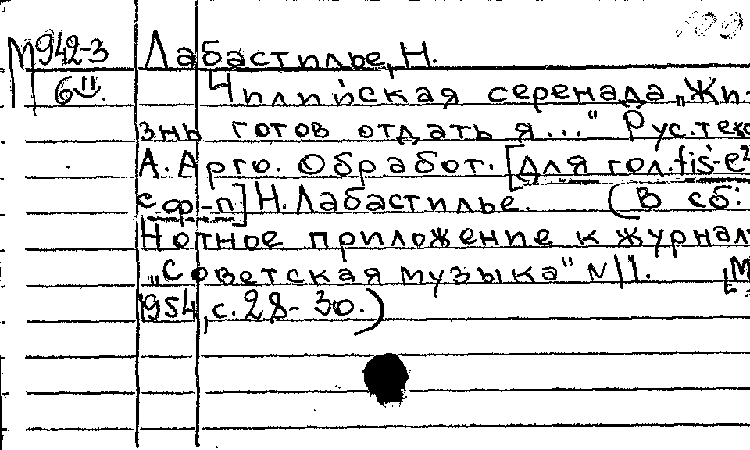 М942-3 Лабастилье, Н.
6 Чилийская серенада „Жи-
знь готов отдать я..." Рус. текс
А. Арго. Обработ. [для гол. fis-e²
с ф-п] Н. Лабастилье. (В сб:
Нотное приложение к журнал
„Советская музыка" N11. [М
1954, с. 28-30.)